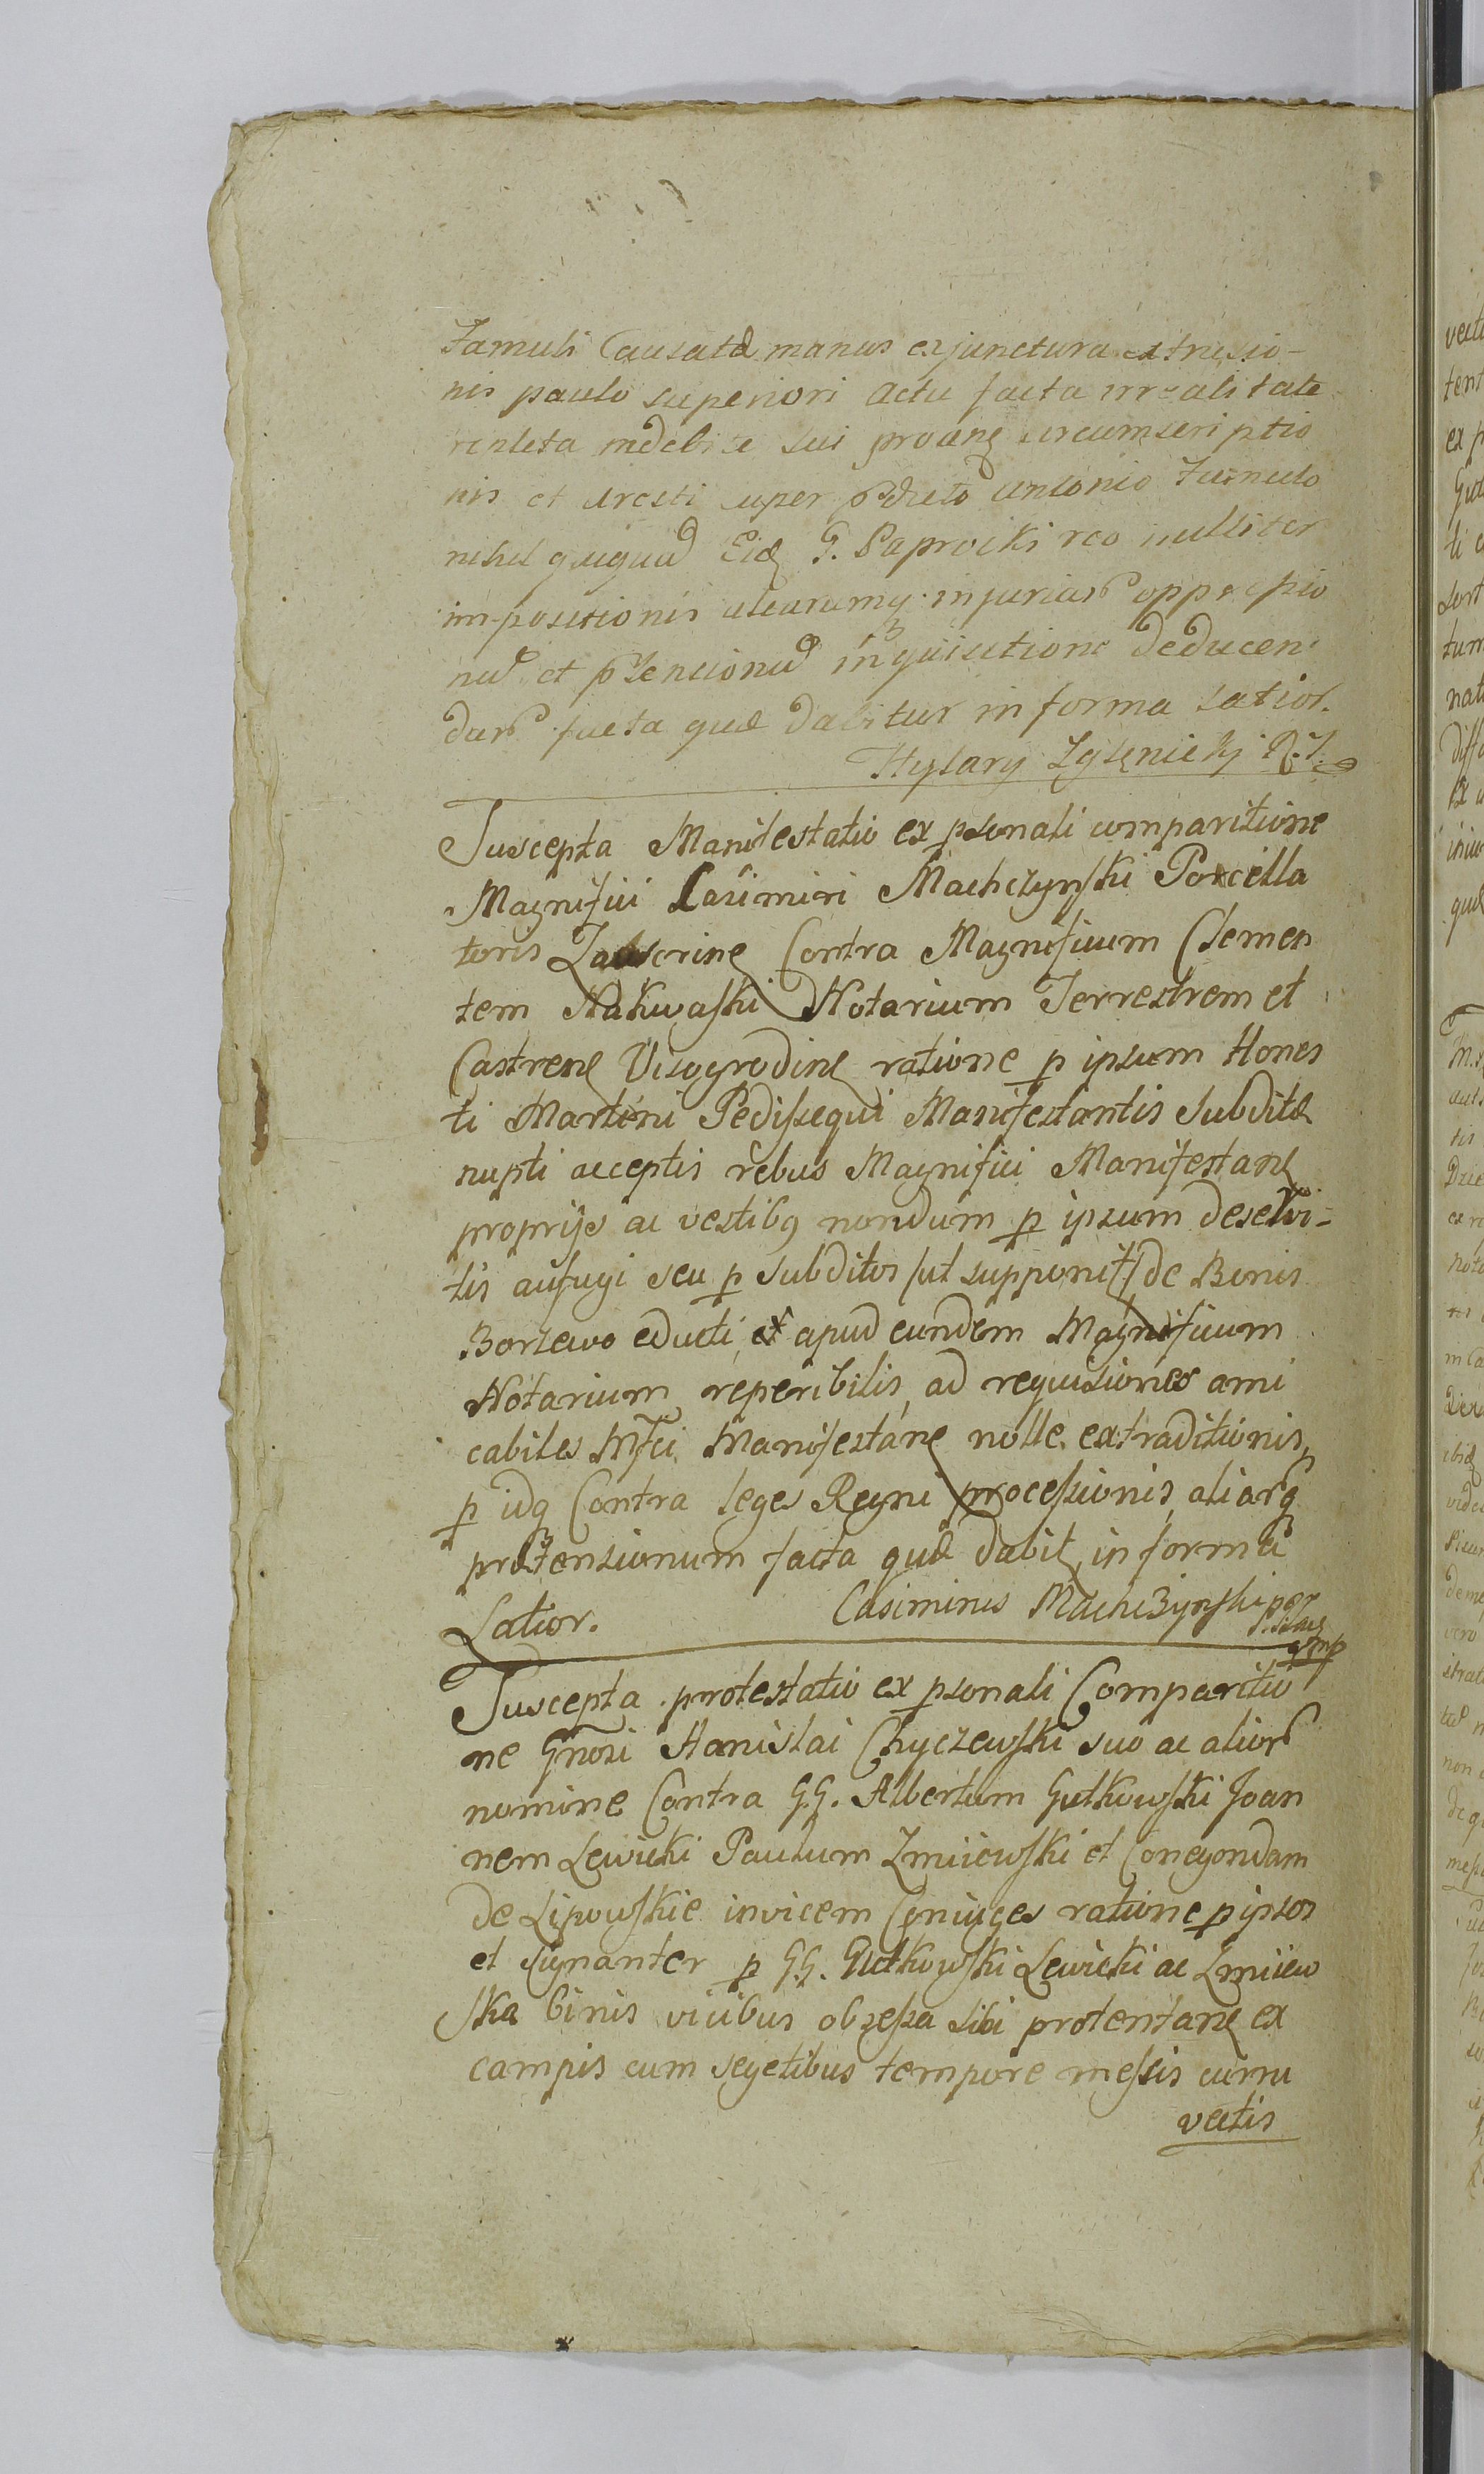 Famuli Causatæ manus ex junctura extrusio-
nis paulo superiori actu facta irrealitate
repleta indebite sui circumscriptio
nis et aresti super Antonio Famulo
nihil Eidē G. Paprocki reo nulliter
impositionis aliarumq injuriar oppressio
nū et ptensionū inquisitione deducen
dar facta quæ dabitur in forma latior.
Hylary
Suscepta Manifestatio ex psonali comparitione
Magnifici Casimiri Machczynski Poxcilla
toris Contra Magnificum Clemen
tem Nakwaski Notarium Terrestrem et
Castren Visogrodien ratione p ipsum Hones
ti Martini Pedissequi Manifestantis Subditæ
nupti acceptis rebus Magnifici Manifestan
proprijs ac vestibq nondum p ipsum deservi-
tis aufugi seu p subditos /ut supponit/ de Bonis
Borzewo educti, et apud eundem Magnificum
Notarium reperibilis, ad requisiones ami
cabiles Mfci Manifestane nolle extraditionis,
p idq Contra leges Regni processionis, aliarq
prætensionum facta quæ dabit in forma
Latior. Casimirus Machczynski
mp
Suscepta protestatio ex psonali Comparitio
ne Gnosi Stanislai Chyczewski suo ac alior
nomine Contra G.G. Albertum Gutkowski Joan
nem Lewicki Paulum Zmiiewski et Conegondam
de Lipowskie invicem Coniuges ratione p ipsos
et signanter p G.G. Gutkowski Lewicki ac Zmiiew
ska binis vicibus obsessa sibi protentane ex
campis cum segetibus tempore messis curru
vectis